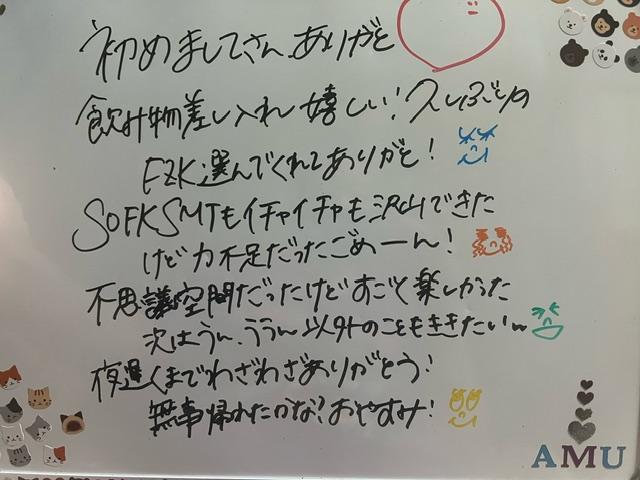 初めましてさん、ありがと
飲み物差し入れ嬉しい！久しぶりの
FZK選んでくれてありがと！
SOFKSMTもイチャイチャも沢山できた
けど力不足だったごめーん！
不思議空間だったけどすごく楽しかった
次はうん、ううん以外のこともききたいw
夜遅くまでわざわざありがとう！
無事帰れたかな？おやすみ！
AMU